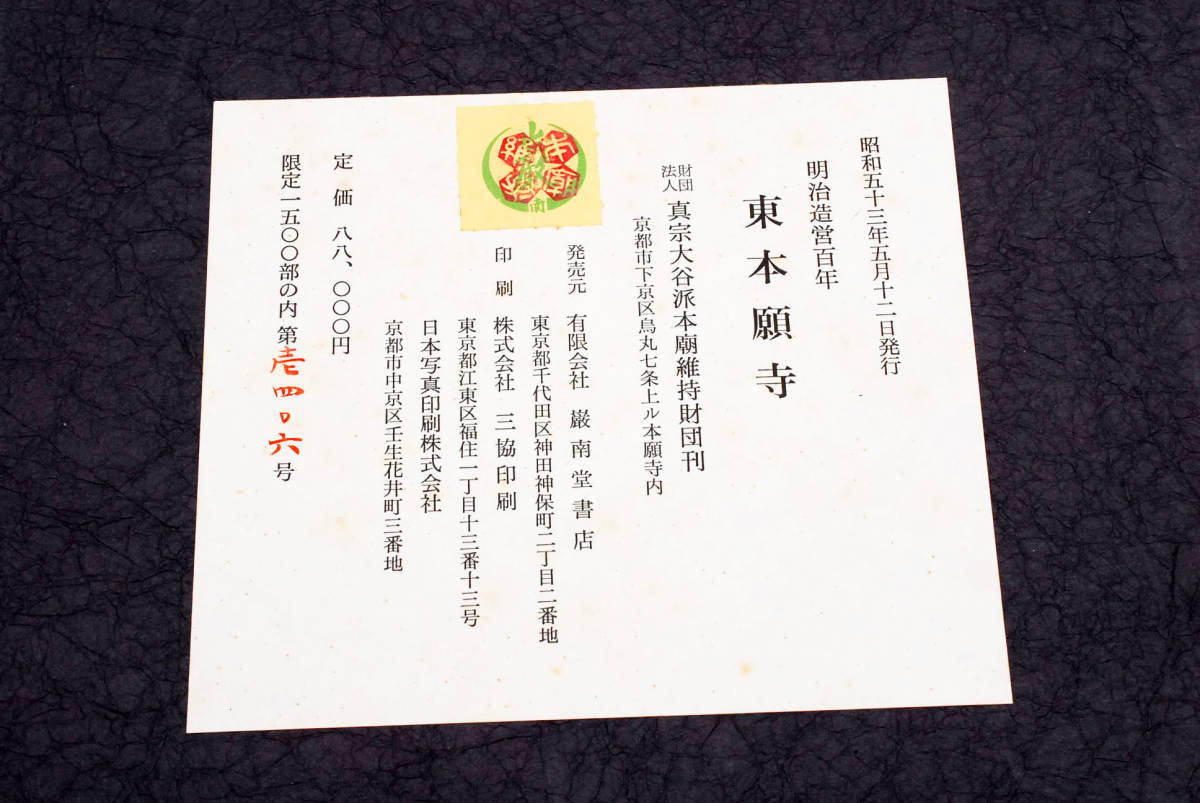 昭和五十三年五月十二日発行
明治造営百年
東本願寺
財団法人 真宗大谷派本廟維持財団刊
京都市下京区烏丸七条上ル本願寺内
発売元 有限会社 巌南堂書店
東京都千代田区神田神保町二丁目二番地
印刷 株式会社 三協印刷
東京都江東区福住一丁目十三番十三号
日本写真印刷株式会社
京都市中京区壬生花井町三番地
定価 八八、〇〇〇円
限定一五〇〇部の内 第壱四〇六号